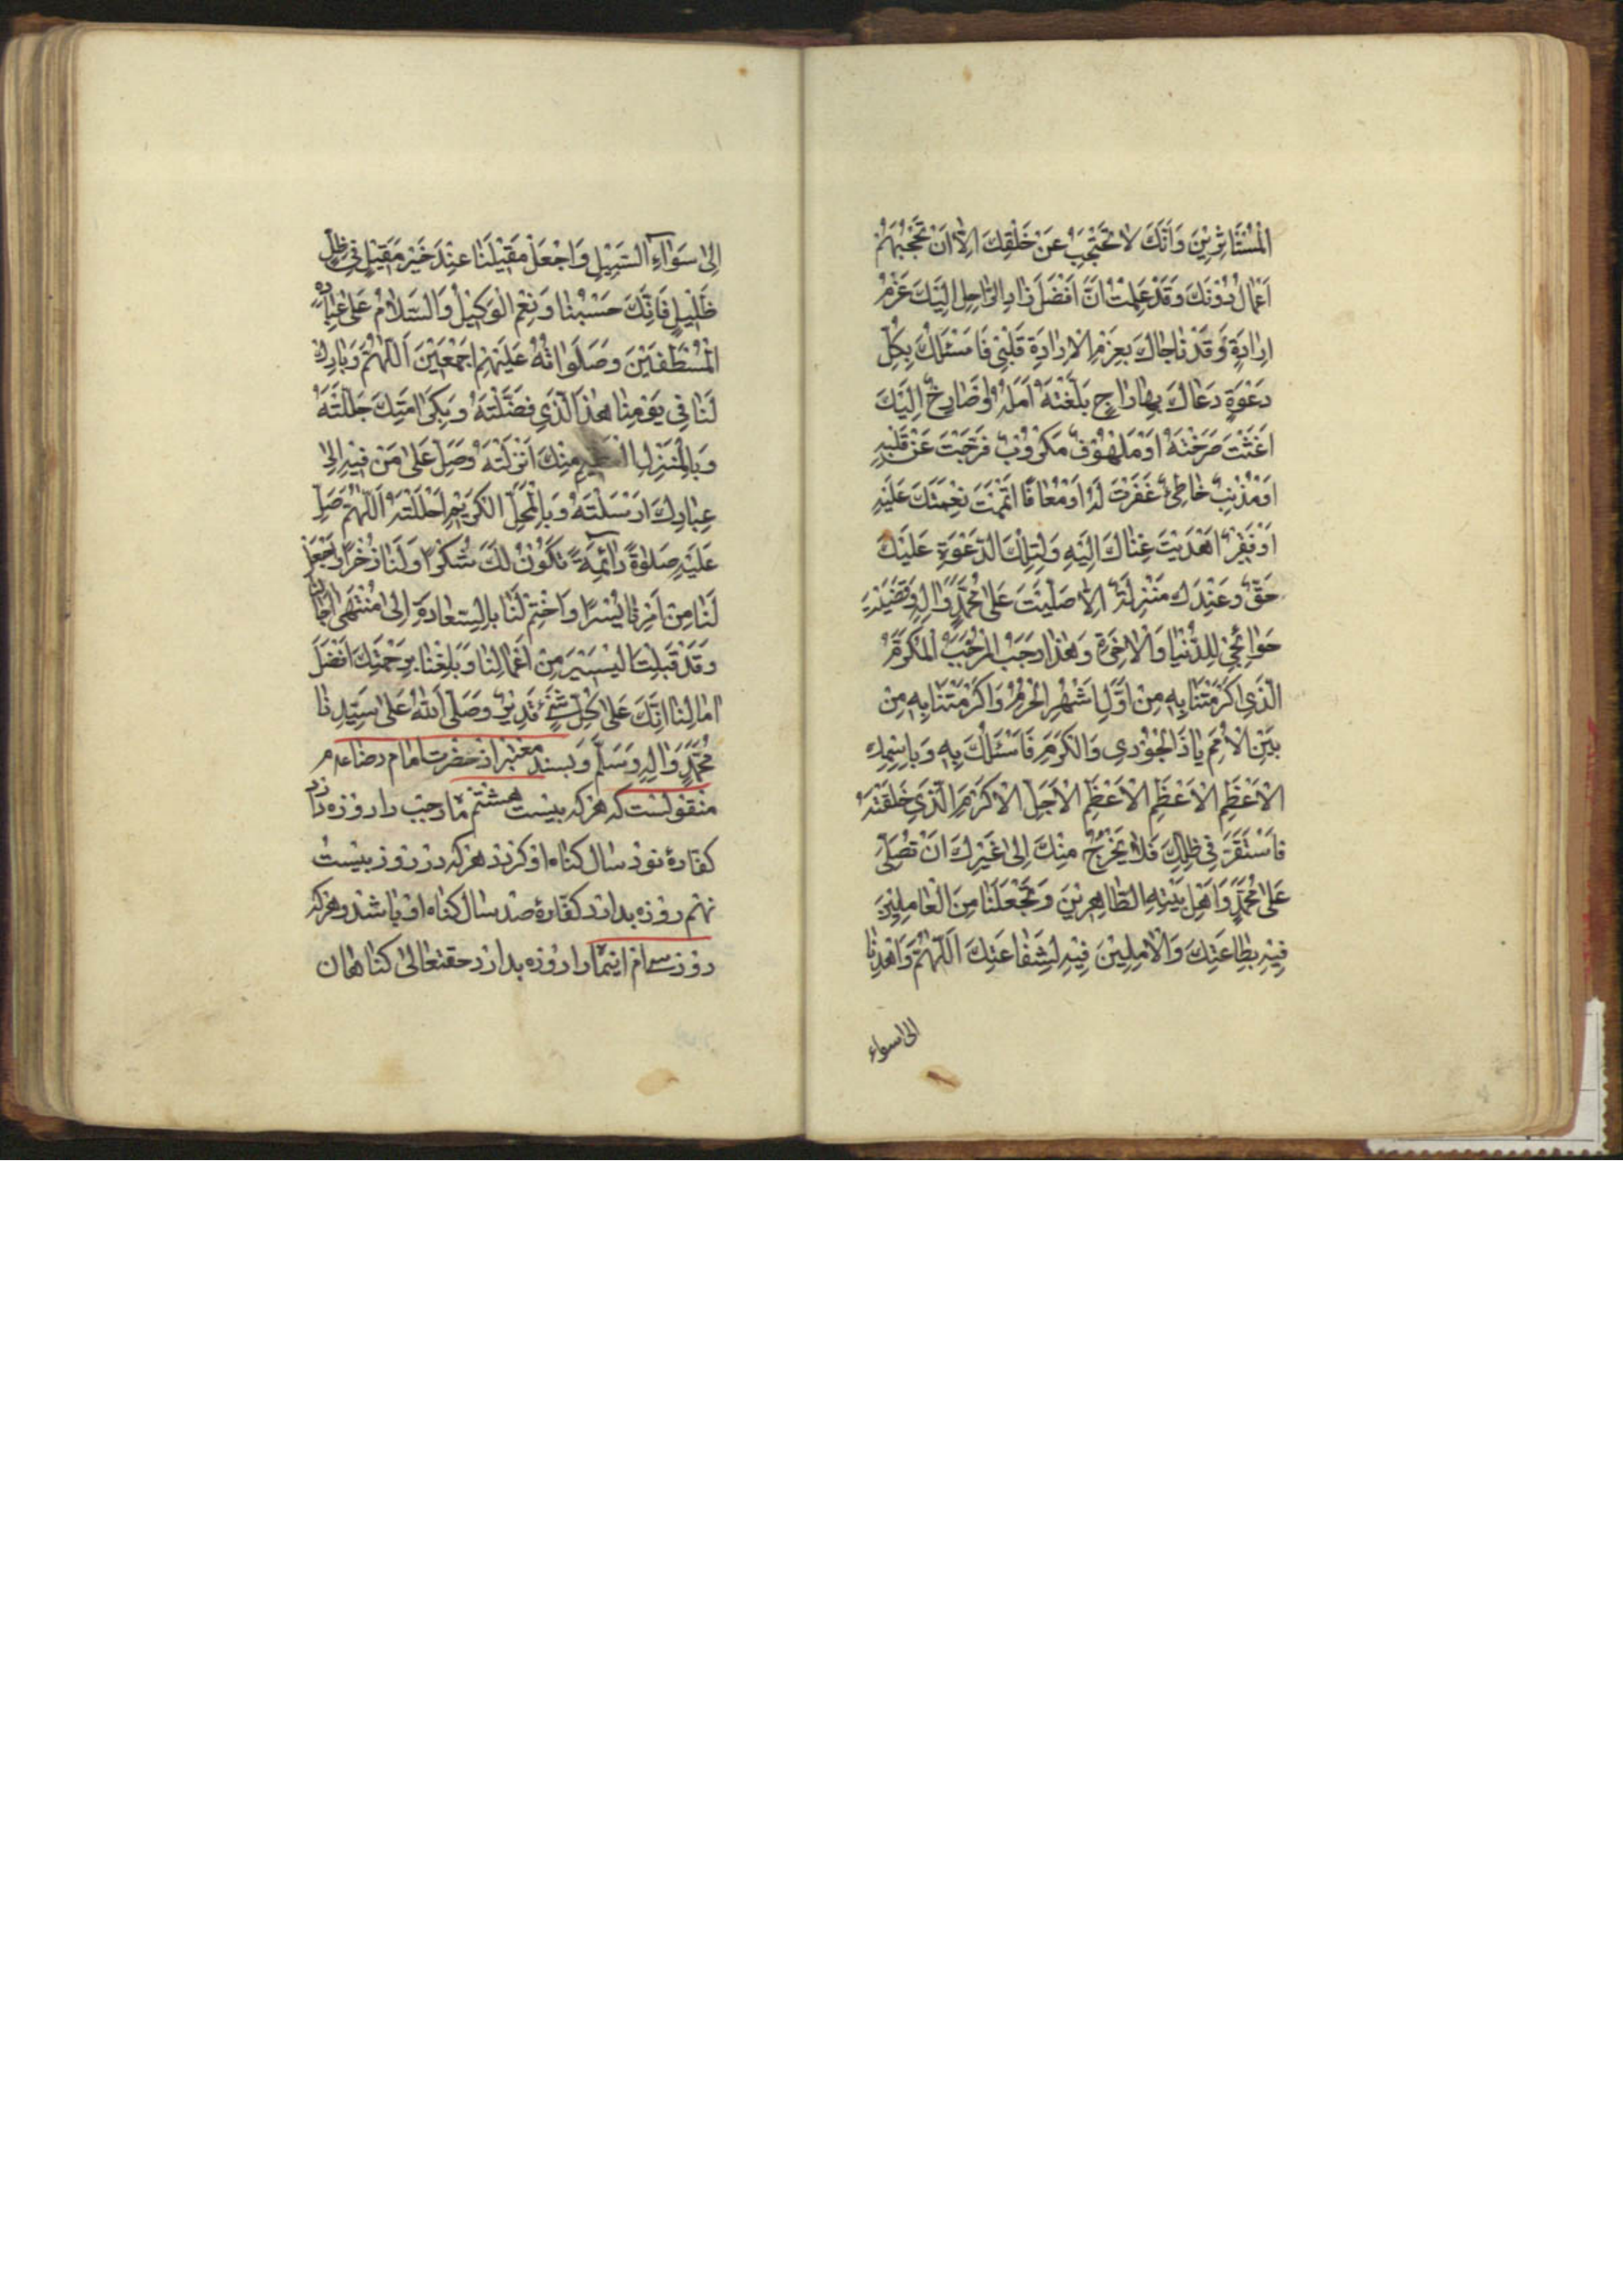 الْمُسْتَأْثِرِيْنَ وَاَنَّكَ لا تَحْتَجِبُ عَنْ خَلْقِكَ اِلَّا اَنْ تَحْجُبَهُمْ
اَعْمَالُ دُوْنَكَ وَقَدْ عَلِمْتُ اَنَّ اَفْضَلَ زَادِ الرَّاحِلِ اِلَيْكَ عَزْمُ
اِرَادَةٍ وَقَدْ نَاجَاكَ بِعَزْمِ الْاِرَادَةِ قَلْبِىْ فَاَسْئَلُكَ بِكُلِّ
دَعْوَةٍ دَعَاكَ بِهَا رَاجٍ بَلَّغْتَهُ اَمَلَهُ اَوْ صَارِخٌ اِلَيْكَ
اَغَثْتَ صَرْخَتَهُ اَوْ مَلْهُوْفٌ مَكْرُوْبٌ فَرَّجْتَ عَنْ قَلْبِهِ
اَوْ مُذْنِبٌ خَاطِئٌ غَفَرْتَ لَهُ اَوْ مُعَافًا اَتْمَمْتَ نِعْمَتَكَ عَلَيْهِ
اَوْ فَقِيْرٌ اَهْدَيْتَ غِنَاكَ اِلَيْهِ وَلِتِلْكَ الدَّعْوَةِ عَلَيْكَ
حَقٌّ وَعِنْدَكَ مَنْزِلَةٌ اِلَّا صَلَّيْتَ عَلىٰ مُحَمَّدٍ وَاٰلِهِ وَقَضَيْتَ
حَوَائِجِىْ لِلدُّنْيَا وَالْاٰخِرَةِ وَهٰذَا رَجَبُ الْمُرَجَّبُ الْمُكَرَّمُ
الَّذِى اَكْرَمْتَنَا بِهِ مِنْ اَوَّلِ اَشْهُرِ الْحُرُمِ وَاَكْرَمْتَنَا بِهِ مِنْ
بَيْنِ الْاُمَمِ يَا ذَا الْجُوْدِ وَالْكَرَمِ فَاَسْئَلُكَ بِهِ وَبِاسْمِكَ
الْاَعْظَمِ الْاَعْظَمِ الْاَعْظَمِ الْاَجَلِّ الْاَكْرَمِ الَّذِى خَلَقْتَهُ
فَاسْتَقَرَّ فِى ظِلِّكَ فَلَا يَخْرُجُ مِنْكَ اِلىٰ غَيْرِكَ اَنْ تُصَلِّىَ
عَلىٰ مُحَمَّدٍ وَاَهْلِ بَيْتِهِ الطَّاهِرِيْنَ وَتَجْعَلَنَا مِنَ الْعَامِلِيْنَ
فِيْهِ بِطَاعَتِكَ وَالْاٰمِلِيْنَ فِيْهِ لِشَفَاعَتِكَ اَللّٰهُمَّ وَاهْدِنَا
الى سواء
اِلىٰ سَوَاءِ السَّبِيْلِ وَاجْعَلْ مَقِيْلَنَا عِنْدَ خَيْرِ مَقِيْلٍ فِى ظِلٍّ
ظَلِيْلٍ فَاِنَّكَ حَسْبُنَا وَنِعْمَ الْوَكِيْلُ وَالسَّلَامُ عَلىٰ عِبَادِهِ
الْمُصْطَفَيْنَ وَصَلَوَاتُهُ عَلَيْهِمْ اَجْمَعِيْنَ اَللّٰهُمَّ وَبَارِكْ
لَنَا فِى يَوْمِنَا هٰذَا الَّذِى فَضَّلْتَهُ وَبِكَرَامَتِكَ جَلَّلْتَهُ
وَبِالْمَنْزِلِ مِنْكَ اَنْزَلْتَهُ وَصَلِّ عَلىٰ مَنْ فِيْهِ اِلىٰ
عِبَادِكَ اَرْسَلْتَهُ وَبِالْمَحَلِّ الْكَرِيْمِ اَحْلَلْتَهُ اَللّٰهُمَّ صَلِّ
عَلَيْهِ صَلٰوةً دَائِمَةً تَكُوْنُ لَكَ شُكْرًا وَلَنَا ذُخْرًا وَاجْعَلْ
لَنَا مِنْ اَمْرِنَا يُسْرًا وَاخْتِمْ لَنَا بِالسَّعَادَةِ اِلىٰ مُنْتَهىٰ اٰجَالِنَا
وَقَدْ قَبِلْتَ الْيَسِيْرَ مِنْ اَعْمَالِنَا وَبَلِّغْنَا بِرَحْمَتِكَ اَفْضَلَ
اٰمَالِنَا اِنَّكَ عَلىٰ كُلِّ شَىْءٍ قَدِيْرٌ وَصَلَّى اللّٰهُ عَلىٰ سَيِّدِنَا
مُحَمَّدٍ وَاٰلِهِ وَسَلَّمَ وبسند معتبر از حضرت امام رضا
منقولست كه هركه بيست هشتم ماه رجب را روزه دارد
كفارۀ نود سال گناه او گردد هركه در روز بيست
نهم روزه بدارد كفارۀ صد سال گناه او باشد و هركه
روز سىام اينماه را روزه بدارد حقتعالى گناهان